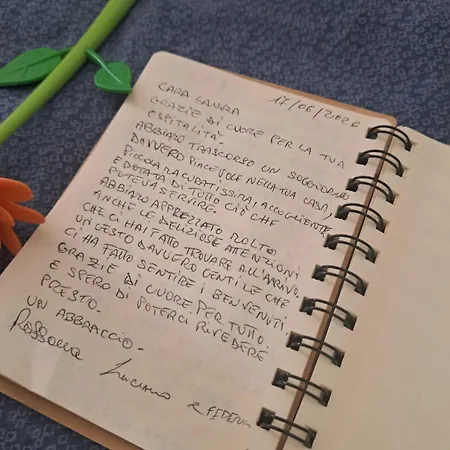 17/06/2026
CARA LAURA
GRAZIE DI CUORE PER LA TUA
OSPITALITÀ.
ABBIAMO TRASCORSO UN SOGGIORNO
DAVVERO PIACEVOLE NELLA TUA CASA,
PICCOLA MA CURATISSIMA, ACCOGLIENTE
E DOTATA DI TUTTO CIÒ CHE
POTEVA SERVIRE.
ABBIAMO APPREZZATO MOLTO
ANCHE LE DELIZIOSE ATTENZIONI
CHE CI HAI FATTO TROVARE ALL'ARRIVO.
UN GESTO DAVVERO GENTILE CHE
CI HA FATTO SENTIRE I BENVENUTI.
GRAZIE DI CUORE PER TUTTO.
E SPERO DI POTERCI RIVEDERE
PRESTO.
UN ABBRACCIO.
Rossana Luciano e